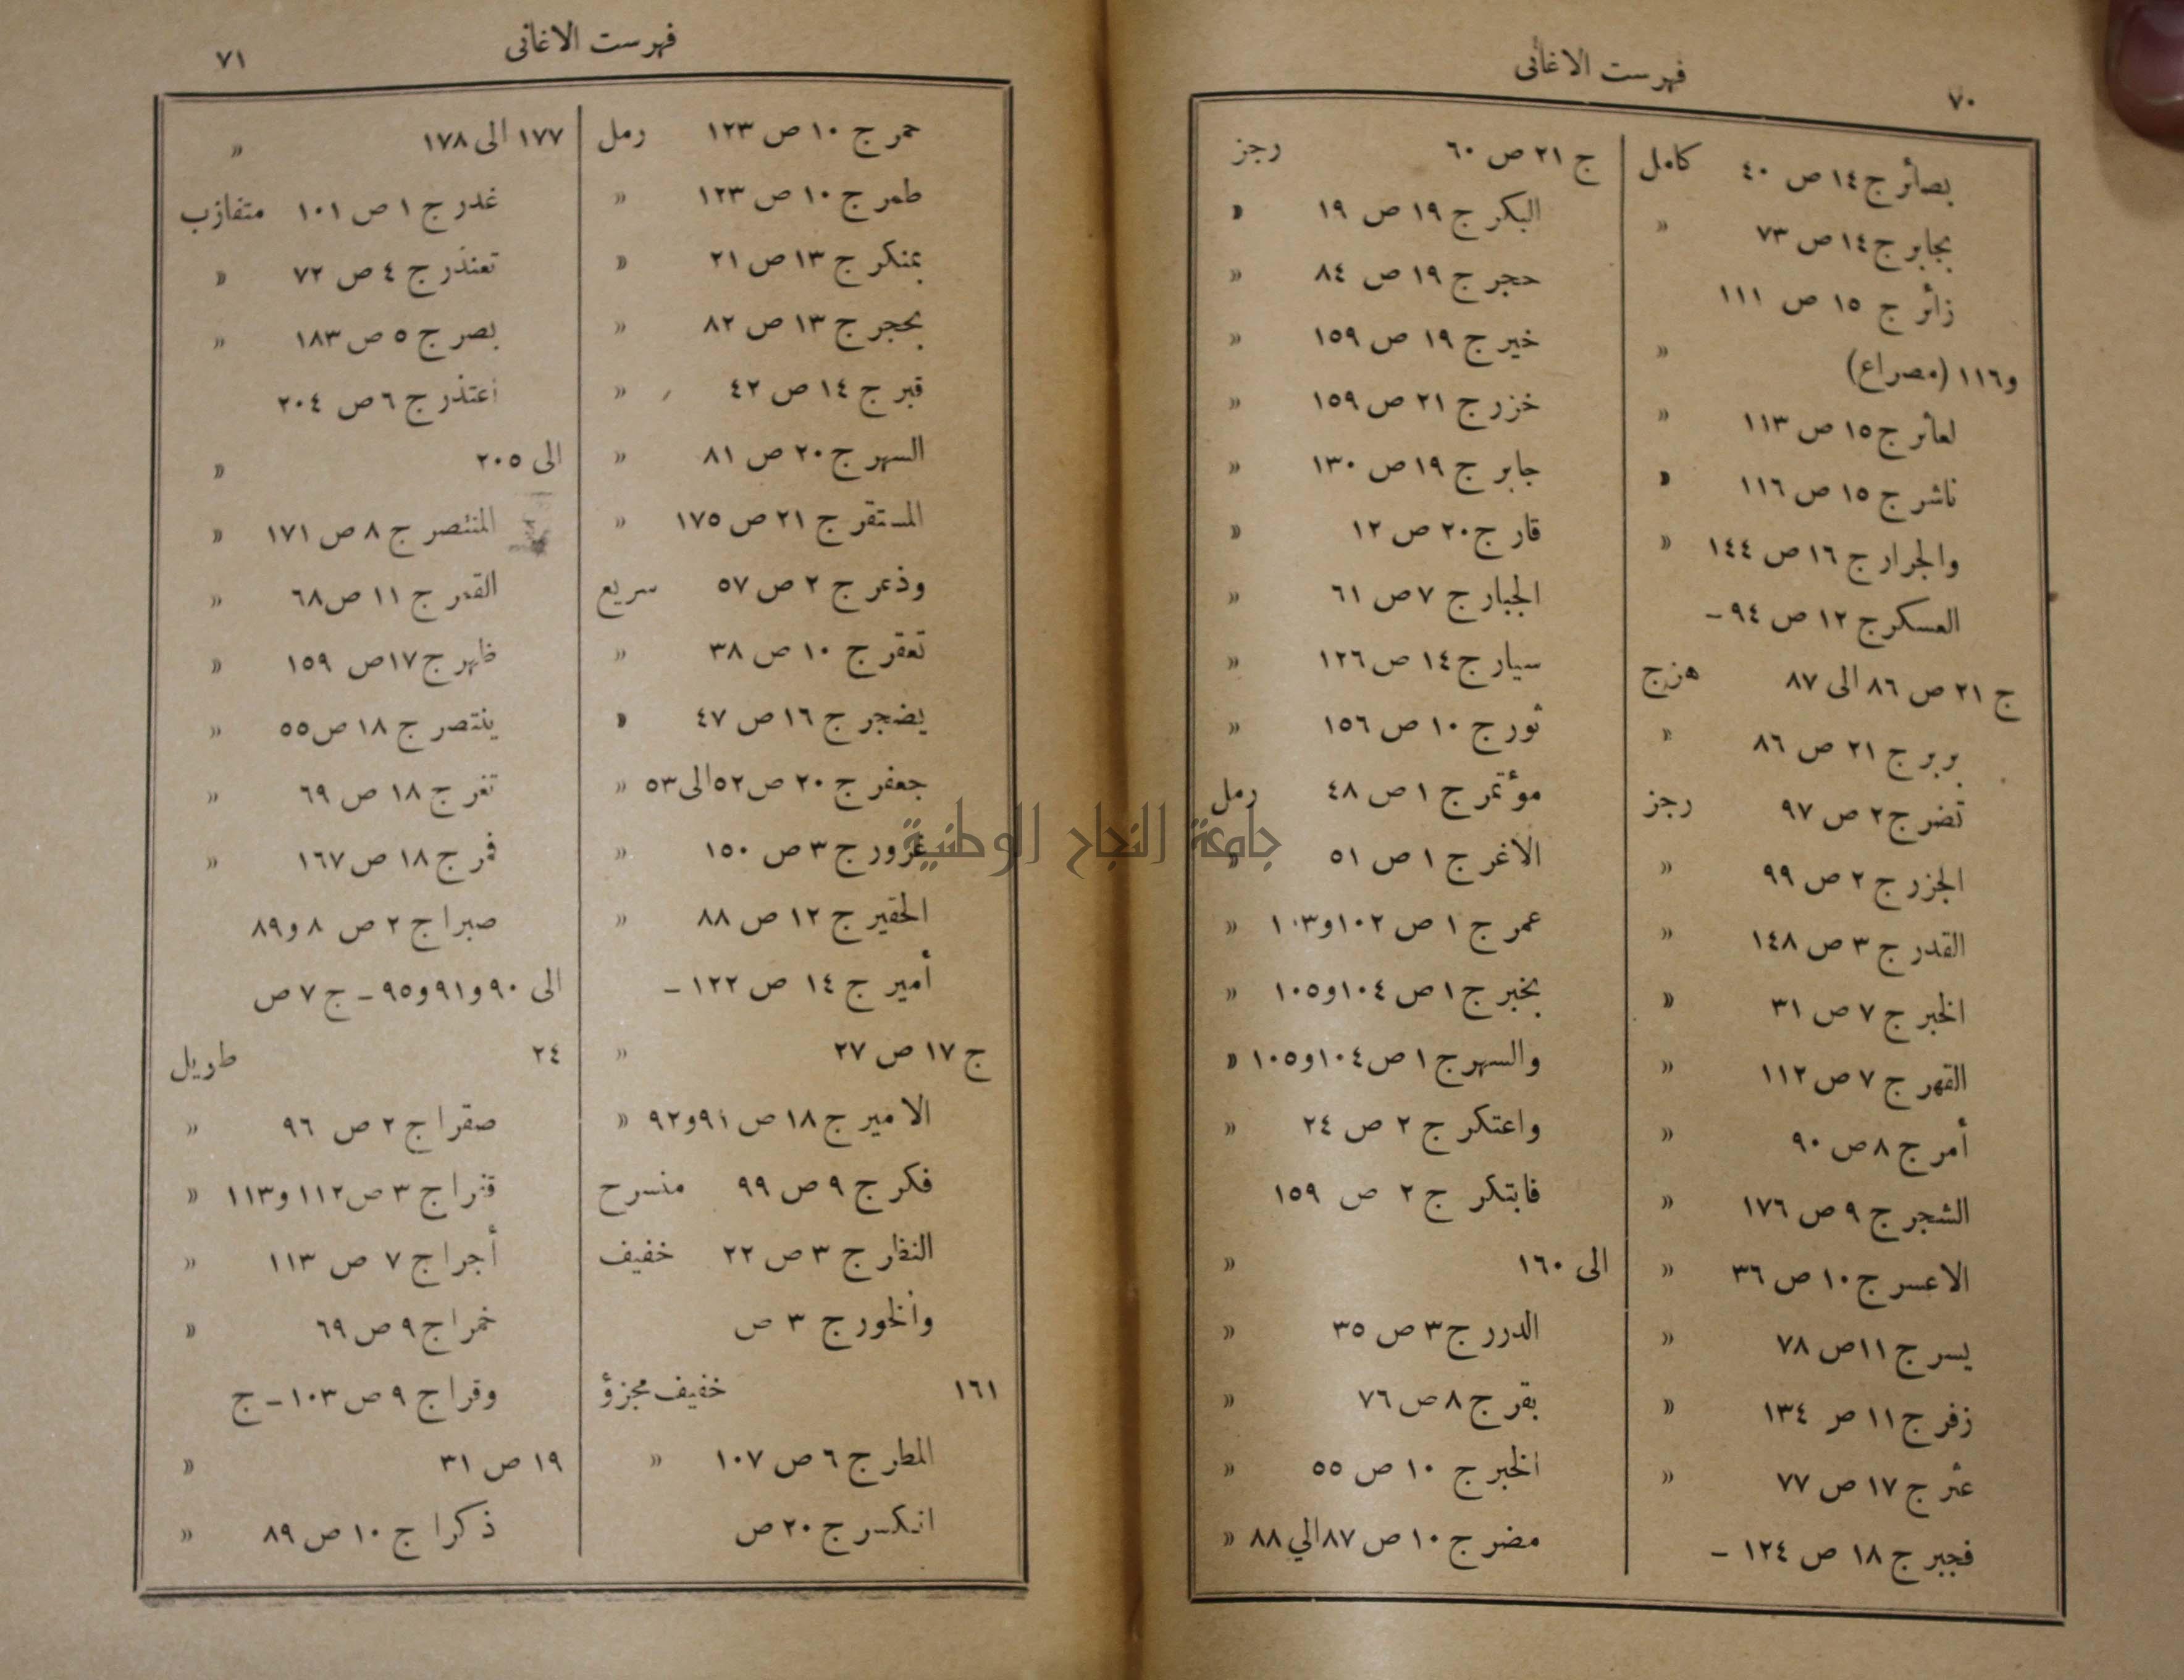 فهرست الاغانى
٧٠
بصائر ج ١٤ ص ٤٠ كامل
بجابر ج ١٤ ص ٧٣ «
زائر ج ١٥ ص ١١١
و١١٦ (مصراع) «
لعائر ج ١٥ ص ١١٣ «
ناشر ج ١٥ ص ١١٦ «
والجرار ج ١٦ ص ١٤٤ «
العسكر ج ١٢ ص ٩٤ –
ج ٢١ ص ٨٦ الى ٨٧ هزج
بربر ج ٢١ ص ٨٦ «
تضر ج ٢ ص ٩٧ رجز
الجزر ج ٢ ص ٩٩ «
القدر ج ٣ ص ١٤٨ «
الخبر ج ٧ ص ٣١ «
القهر ج ٧ ص ١١٢ «
أمر ج ٨ ص ٩٠ «
الشجر ج ٩ ص ١٧٦ «
الاعسر ج ١٠ ص ٣٦ «
يسر ج ١١ ص ٧٨ «
زفر ج ١١ ص ١٣٤ «
عثر ج ١٧ ص ٧٧ «
فجبر ج ١٨ ص ١٢٤ –
ج ٢١ ص ٦٠ رجز
البكر ج ١٩ ص ١٩ «
حجر ج ١٩ ص ٨٤ «
خير ج ١٩ ص ١٥٩ «
خزر ج ٢١ ص ١٥٩ «
جابر ج ١٩ ص ١٣٠ «
قار ج ٢٠ ص ١٢ «
الجبار ج ٧ ص ٦١ «
سيار ج ١٤ ص ١٢٦ «
ثور ج ١٠ ص ١٥٦ «
مؤتمر ج ١ ص ٤٨ رمل
الاغر ج ١ ص ٥١ «
عمر ج ١ ص ١٠٢ و١٠٣ «
بخبر ج ١ ص ١٠٤ و١٠٥ «
والسهر ج ١ ص ١٠٤ و١٠٥ «
واعتكر ج ٢ ص ٢٤ «
فابتكر ج ٢ ص ١٥٩
الى ١٦٠ «
الدرر ج ٣ ص ٣٥ «
بقر ج ٨ ص ٧٦ «
الخبر ج ١٠ ص ٥٥ «
مضر ج ١٠ ص ٨٧ الي ٨٨ «
فهرست الاغانى
٧١
حمر ج ١٠ ص ١٢٣ رمل
طمر ج ١٠ ص ١٢٣ «
بمنكر ج ١٣ ص ٢١ «
بحجر ج ١٣ ص ٨٢ «
قبر ج ١٤ ص ٤٢ «
السهر ج ٢٠ ص ٨١ «
المستقر ج ٢١ ص ١٧٥ «
وذعر ج ٢ ص ٥٧ سريع
تعقر ج ١٠ ص ٣٨ «
يضجر ج ١٦ ص ٤٧ «
جعفر ج ٢٠ ص ٥٢ الى ٥٣ «
غرور ج ٣ ص ١٥٠ «
الحقير ج ١٢ ص ٨٨ «
أمير ج ١٤ ص ١٢٢ –
ج ١٧ ص ٢٧ «
الامير ج ١٨ ص ٩١ و٩٢ «
فكر ج ٩ ص ٩٩ منسرح
النظار ج ٣ ص ٢٢ خفيف
والخور ج ٣ ص
١٦١ خفيف مجزؤ
المطر ج ٦ ص ١٠٧ «
انكسر ج ٢٠ ص
١٧٧ الى ١٧٨ «
غدر ج ١ ص ١٠١ متقارب
تعتذر ج ٤ ص ٧٢ «
بصر ج ٥ ص ١٨٣ «
اعتذر ج ٦ ص ٢٠٤
الى ٢٠٥ «
المنتصر ج ٨ ص ١٧١ «
القمر ج ١١ ص ٦٨ «
ظهر ج ١٧ ص ١٥٩ «
ينتصر ج ١٨ ص ٥٥ «
تغر ج ١٨ ص ٦٩ «
قمر ج ١٨ ص ١٦٧ «
صبرا ج ٢ ص ٨ و٨٩
الى ٩٠ و٩١ و٩٥ – ج ٧ ص
٢٤ طويل
صقرا ج ٢ ص ٩٦ «
قترا ج ٣ ص ١١٢ و١١٣ «
أجرا ج ٧ ص ١١٣ «
خمرا ج ٩ ص ٦٩ «
وقرا ج ٩ ص ١٠٣ – ج
١٩ ص ٣١ «
ذكرا ج ١٠ ص ٨٩ «
جامعة النجاح الوطنية